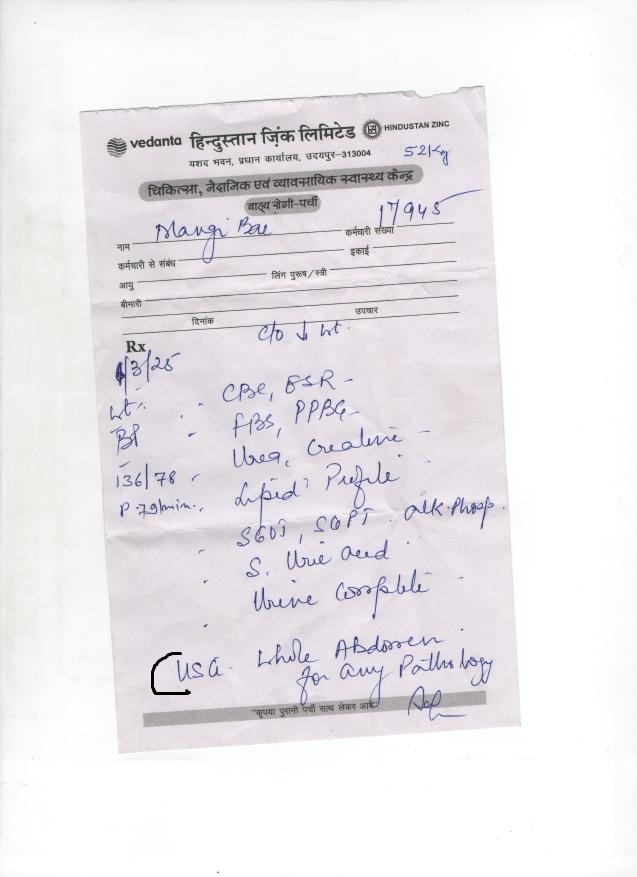 vedanta हिन्दुस्तान ज़िंक लिमिटेड HINDUSTAN ZINC
यशद भवन, प्रधान कार्यालय, उदयपुर-313004 52Kg
चिकित्सा, नैदानिक एवं व्यावसायिक स्वास्थ्य केन्द्र
बाह्य रोगी-पर्ची
नाम Mangi Bae कर्मचारी संख्या 17945
कर्मचारी से संबंध इकाई
आयु लिंग पुरूष/स्त्री
बीमारी
दिनांक उपचार
Rx C/o ↓ wt.
/3/25
wt. CBC, ESR -
BP - FBS, PPBG -
136/78 Urea, Creatinine -
P. 79/min. Lipid Profile
SGOT, SGPT. Alk. Phosp.
S. Uric acid
Urine Complete
USG. Whole Abdomen
for any Pathology
"कृपया पुरानी पर्ची साथ लेकर आवें"